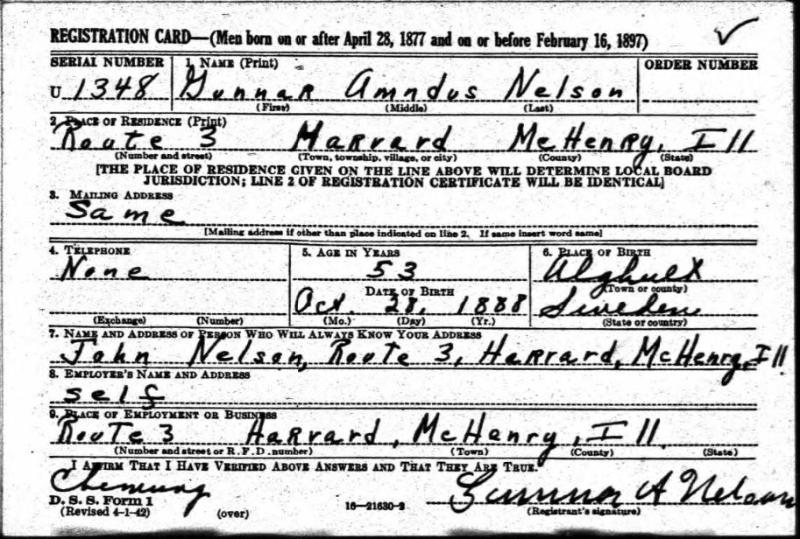 REGISTRATION CARD—(Men born on or after April 28, 1877 and on or before February 16, 1897)
SERIAL NUMBER 1. NAME (Print) ORDER NUMBER
U 1348 Gunnar Amndus Nelson
(First) (Middle) (Last)
2. PLACE OF RESIDENCE (Print)
Route 3 Harvard McHenry, Ill
(Number and street) (Town, township, village, or city) (County) (State)
[THE PLACE OF RESIDENCE GIVEN ON THE LINE ABOVE WILL DETERMINE LOCAL BOARD
JURISDICTION; LINE 2 OF REGISTRATION CERTIFICATE WILL BE IDENTICAL]
3. MAILING ADDRESS
Same
[Mailing address if other than place indicated on line 2. If same insert word same]
4. TELEPHONE 5. AGE IN YEARS 6. PLACE OF BIRTH
None 53 Alghult
DATE OF BIRTH (Town or county)
Oct. 28, 1888 Sweden
(Exchange) (Number) (Mo.) (Day) (Yr.) (State or country)
7. NAME AND ADDRESS OF PERSON WHO WILL ALWAYS KNOW YOUR ADDRESS
John Nelson, Route 3, Harvard, McHenry, Ill
8. EMPLOYER'S NAME AND ADDRESS
self
9. PLACE OF EMPLOYMENT OR BUSINESS
Route 3 Harvard, McHenry, Ill.
(Number and street or R. F. D. number) (Town) (County) (State)
I AFFIRM THAT I HAVE VERIFIED ABOVE ANSWERS AND THAT THEY ARE TRUE.
Chemung
D. S. S. Form 1 Gunnar A Nelson
(Revised 4-1-42) (over) 16—21630-2 (Registrant's signature)